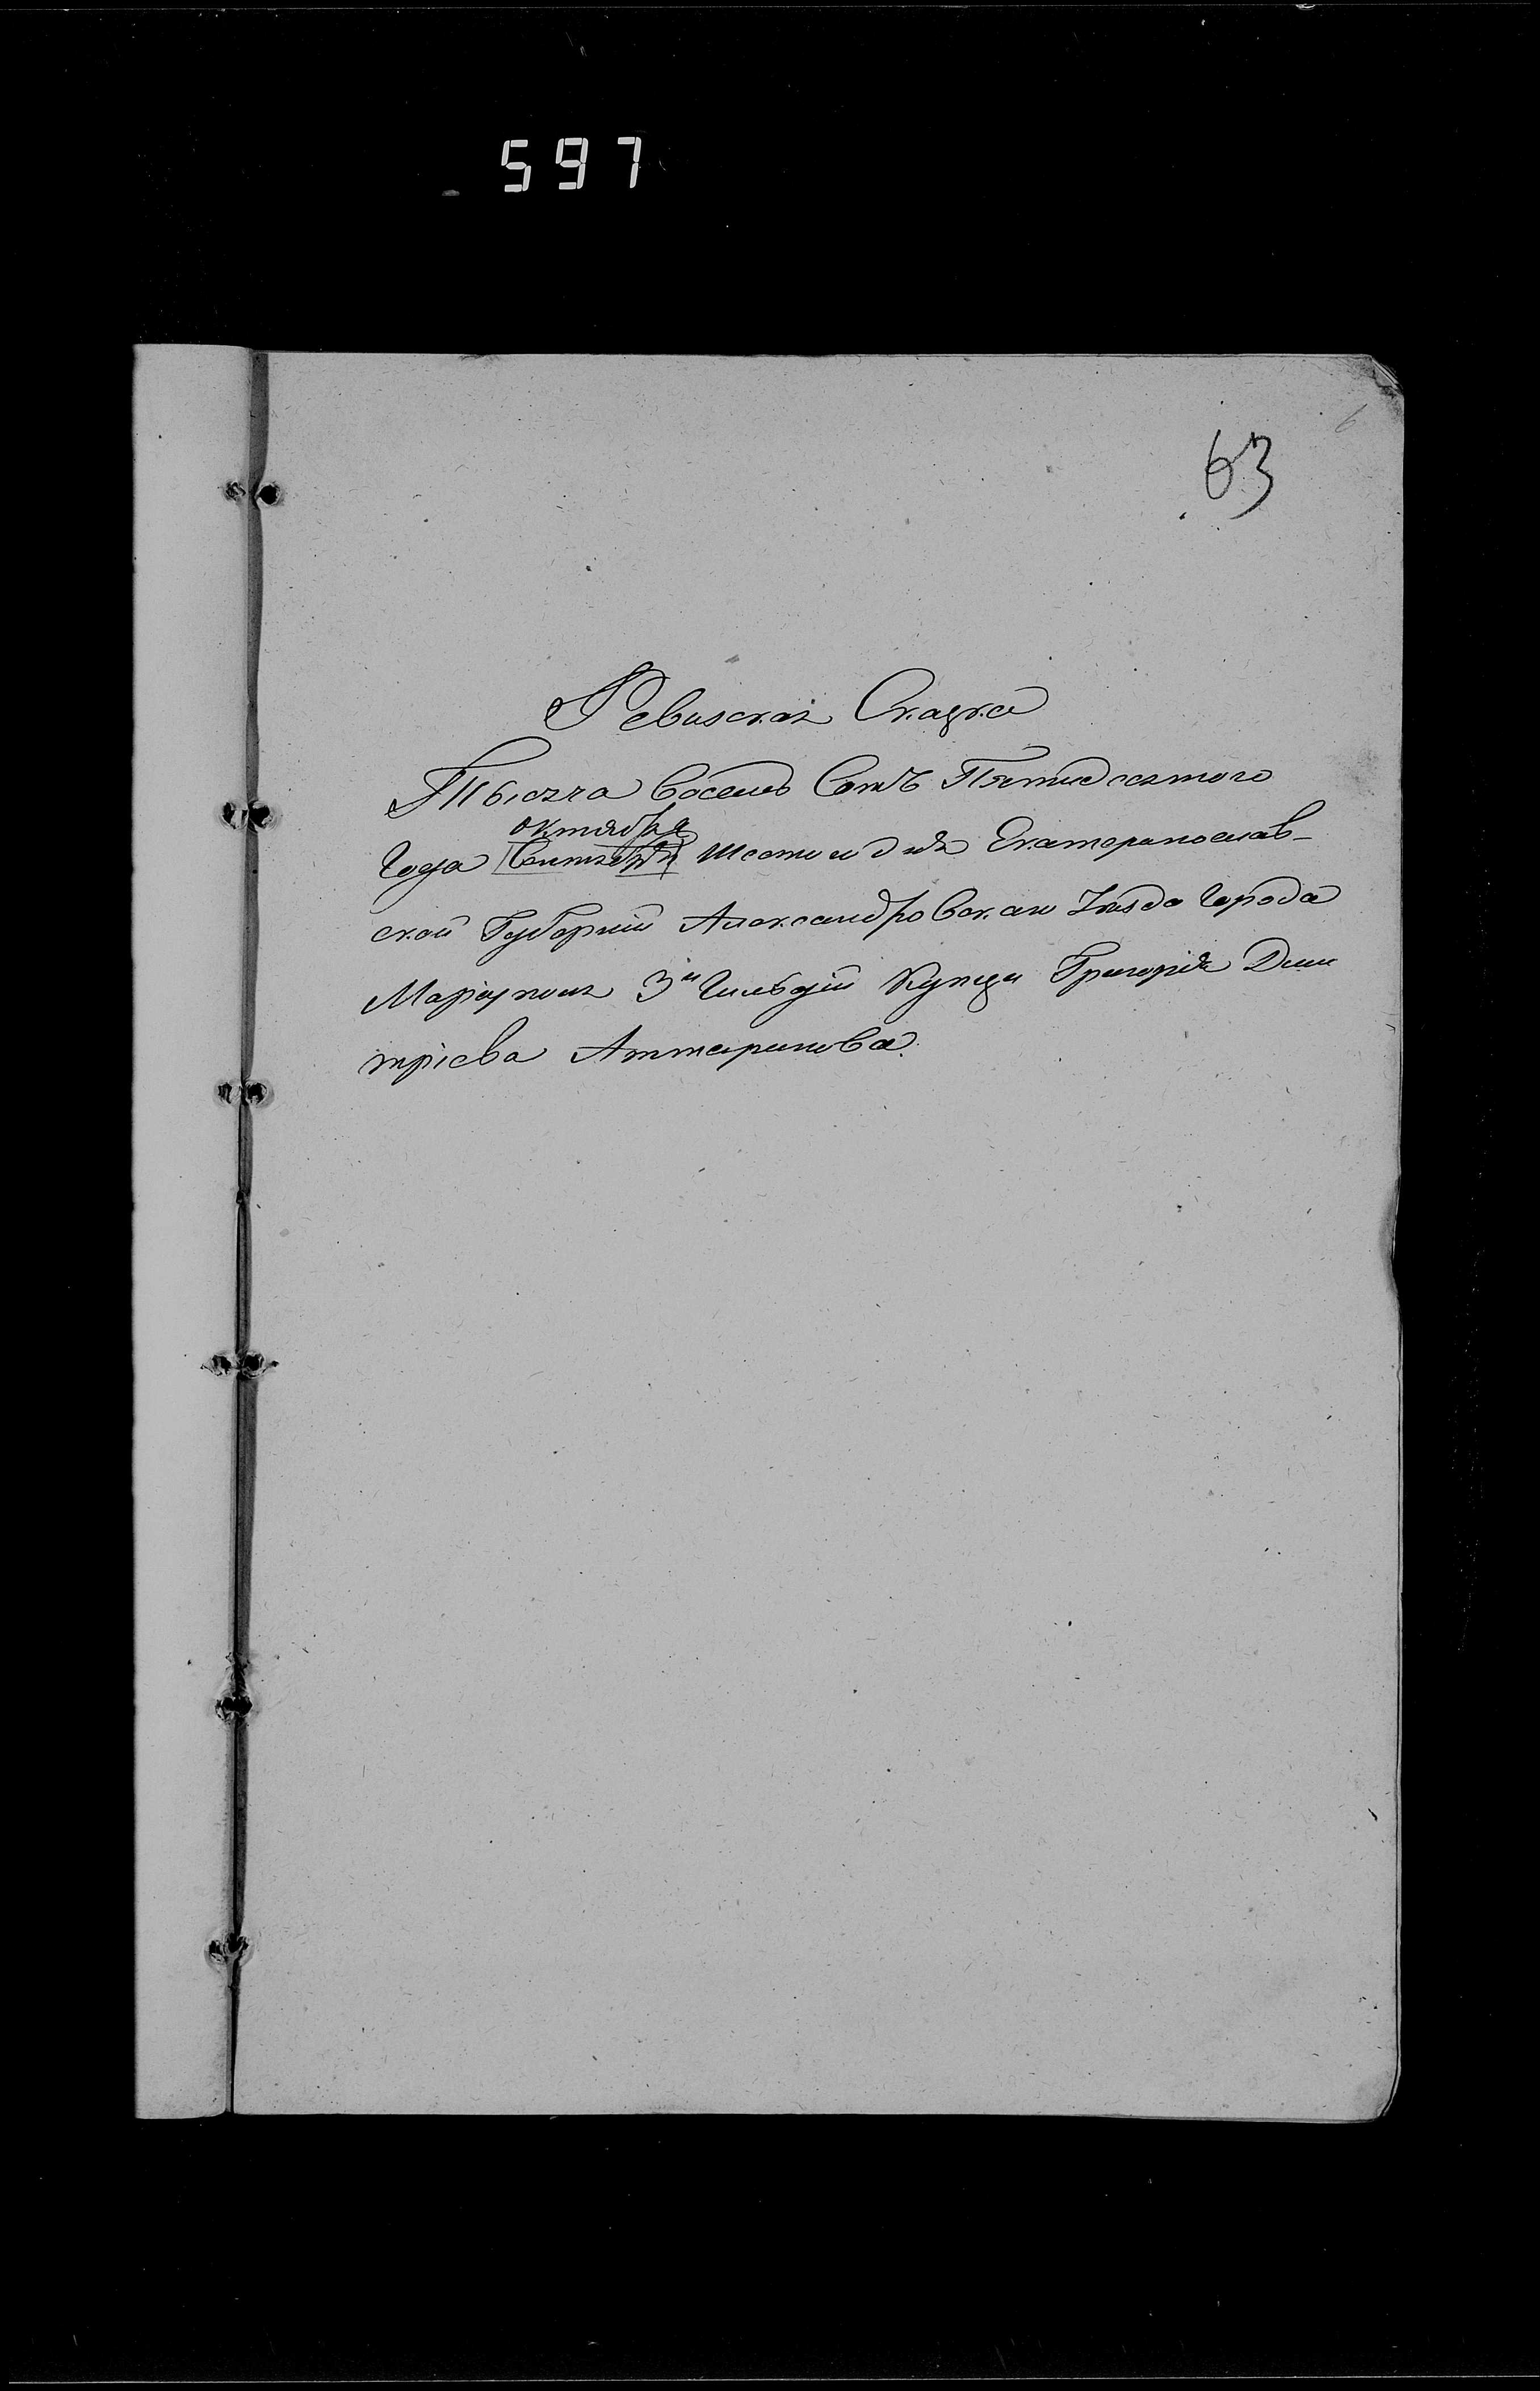 597
6
63
Ревизская Сказка
Тысяча восемь Сотъ Пятидесятого
октября
Года Сентября Шестого дня Екатеринослав-
ской Губерніи Александровскаго Уѣзда Города
Маріуполя 3й Гильдіи Купца Григорія Дми
тріева Аттаринова.